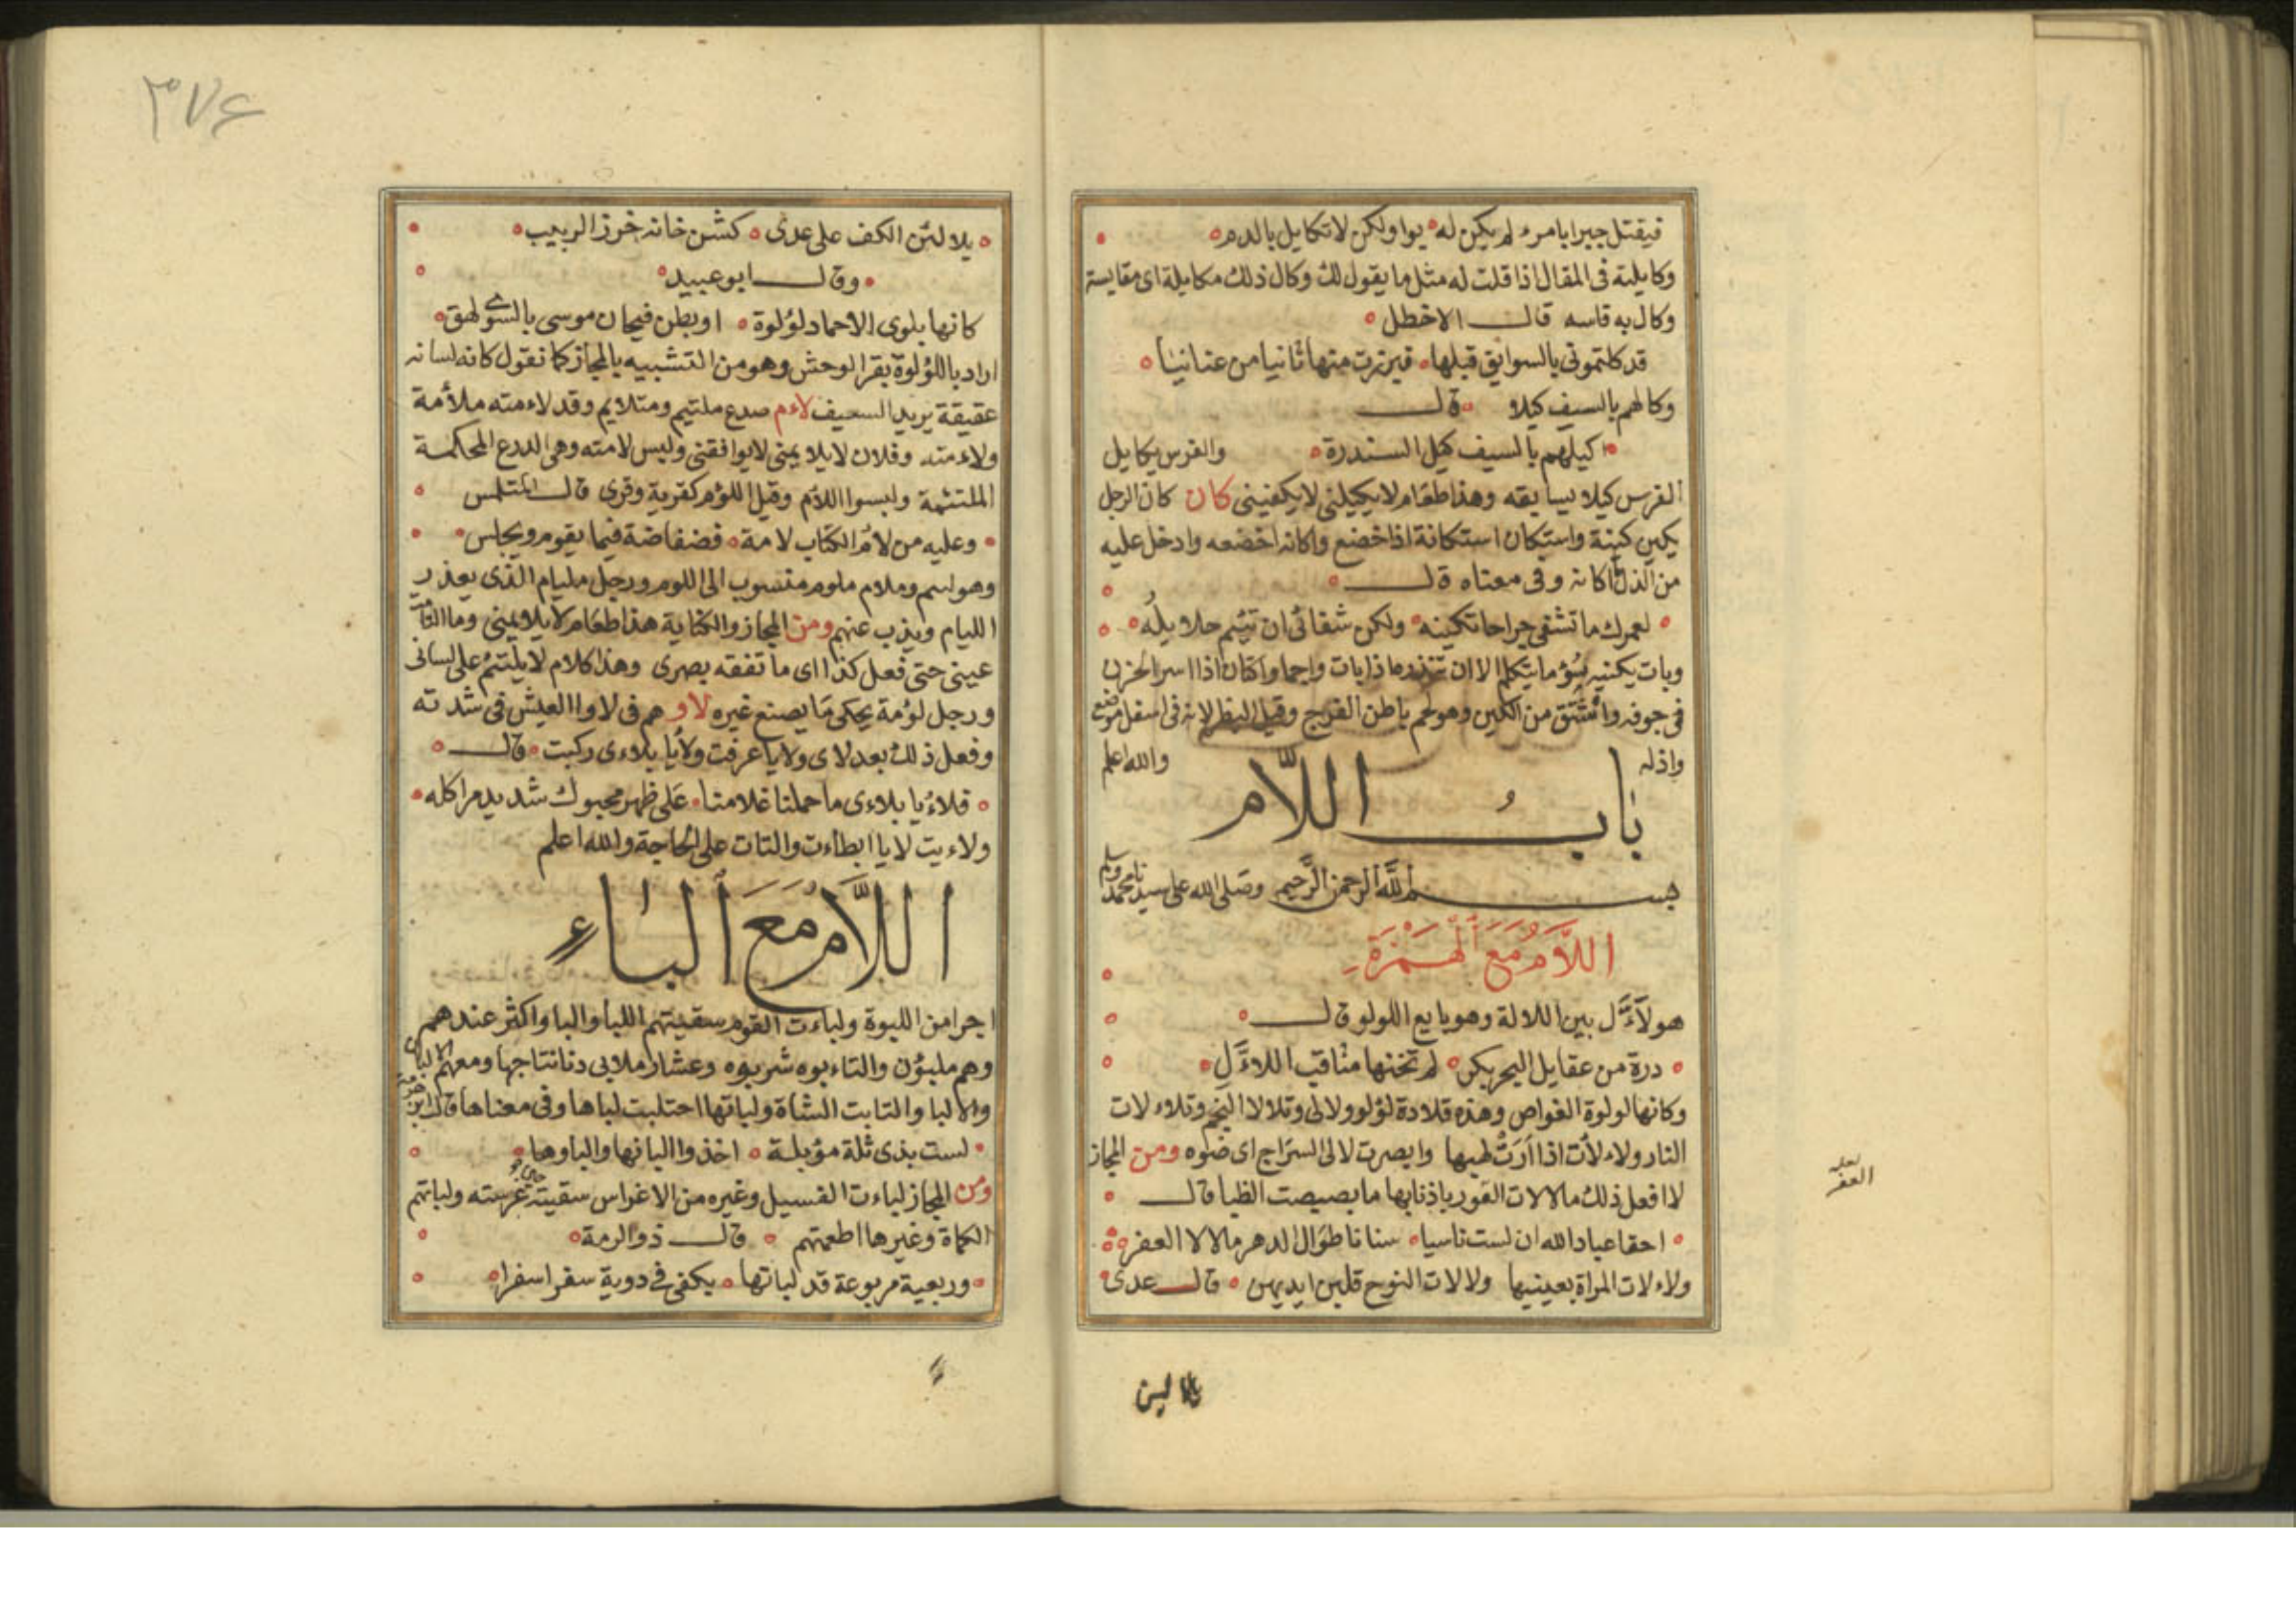 فيقتل جبرا بامرء لم يكن له يوا ولكن لا تكايل بالدم
وكايلته فى المقال اذا قلت له مثل ما يقول لك وكال ذلك مكايلة اى مقايسة
وكال به قاسه قال الاخطل
قد كلتمونى بالسوابق قبلها فبرزت منها ثانيا من عنانيا
وكالهم بالسيف كيلا قال
اكيلهم بالسيف كيل السندرة والفرس يكايل
الفرس كيلا يسابقه وهذا طعام لا يكيلنى لا يكفينى كان كان الرجل
يكين كينة واستكان استكانة اذا خضع واكانه اخضعه وادخل عليه
من الذل ما اكانه وفى معناه قال
لعمرك ما تشفى جراحا تكينه ولكن شفائى ان تئيم حلايله
وبات يكنيه سوء ما يتكلم الا ان تنذره ماذا بات واجما واكتان اذا اسر الحزن
فى جوفه واشتق من الكين وهو لحم باطن الفرج وقيل البظر لانه فى اسفل موضع
واذله والله اعلم
باب اللام
بسم الله الرحمن الرحيم وصلى الله على سيدنا محمد وسلم
اللام مع الهمزة
هو لآءل بين اللالة وهو بايع اللولو قال
درة من عقايل البحر بكر لم تخنها مثاقب اللاءل
وكانها لولوة الغواص وهذه قلادة لؤلو ولالى وتلالا النجم وتلاء لات
النار ولاء لأت اذا ارت لهبها وابصرت لالى السراج اى ضوه ومن المجاز
لا افعل ذلك ما لالات الفور باذنابها ما بصبصت الظبا قال
احقا عباد الله ان لست ناسيا سنانا طوال الدهر ما لالا العفر
ولاء لات المراة بعينيها ولالات النوح قلبن ايديهن قال عدى
لعله
العفر
يلا لين
٣٧٤
يلا لئن الكف على عدى كشن خانه خرز الربيب
وقال ابو عبيد
كانها بلوى الاحماد لؤلوة او بطن فيحان موسى بالشوى لهق
اراد باللؤلوة بقر الوحش وهو من التشبيه بالمجاز كما تقول كانه لسانه
عقيقة يريد السيف لاءم صدع ملتيم ومتلايم وقد لاءمته ملأمة
ولاءمته وفلان لا يلايمنى لا يوافقنى ولبس لامته وهى الدرع المحكمة
الملتئمة ولبسوا اللأم وقيل اللؤم كقرية وقرى قال المتلمس
وعليه من لأم الكتاب لامة فضفاضة فيما يقوم ويجلس
وهو لسم وملام ملوم منسوب الى اللوم ورجل مليام الذى يعذر
الليام ويذب عنهم ومن المجاز والكناية هذا طعام لا يلايمنى وما التامت
عينى حتى فعل كذا اى ما تفقه بصرى وهذا كلام لا يلتئم على لسانى
ورجل لؤمة يحكى ما يصنع غيره لاو هم فى لاوا العيش فى شدته
وفعل ذلك بعد لاى ولايا عرفت ولأيا بلاءى ركبت قال
فلاءيا بلاءى ما حملنا غلامنا على ظهر محبوك شديد مراكله
ولاءيت لايا ابطاءت والتات على الحاجة والله اعلم
اللام مع الباء
اجرا من اللبوة ولباءت القوم سقيتهم اللبا والبا واكثر عندهم
وهم ملبؤن والتاءبوه شربوه وعشار ملابى دنا نتاجها ومعهم الالبان
والالبا والتابت الشاة ولباتها احتلبت لباها وفى معناها قال ابن حزمة
لست بذى ثلة مؤبلة اخذوا البانها والباوها
ومن المجاز لباءت الفسيل وغيره من الاغراس سقيته حين غرسته ولباتهم
الكماة وغيرها اطعمتهم قال ذو الرمة
وربعية مربوعة قد لباتها بكفى فى دوية سفر اسفرا